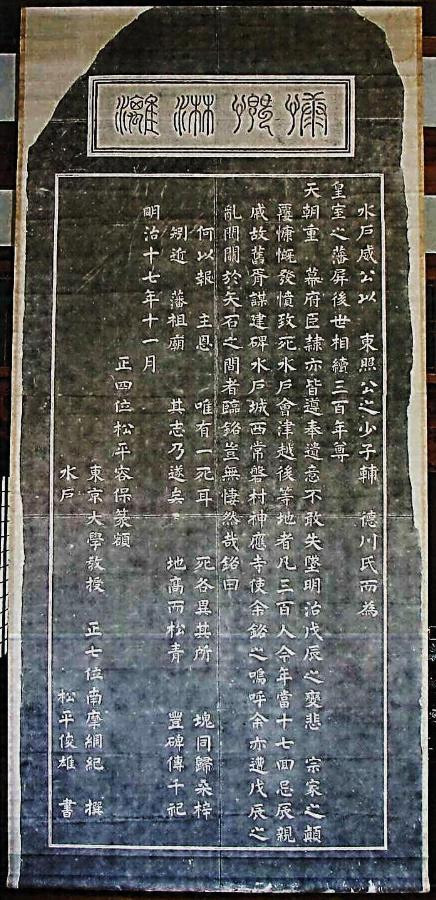 慷慨淋漓
水戶威公以 東照公之少子輔 德川氏而為
皇室之藩屏後世相續三百年尊
天朝重 幕府臣隸亦皆遵奉遺意不敢失墜明治戊辰之變悲 宗家之顛
覆慷慨發憤致死水戶會津越後等地者凡三百人今年當十七回忌辰親
戚故舊胥謀建碑水戶城西常磐村神應寺使余銘之嗚呼余亦遭戊辰之
亂間關於矢石之間者臨銘豈無悽然哉銘曰
何以報 主恩 唯有一死耳 死各異其所 魂同歸桑梓
矧近 藩祖廟 其志乃遂矣 地高而松青 豐碑傳千祀
明治十七年十一月
正四位松平容保篆額
東京大學教授 正七位南摩綱紀 撰
水戶 松平俊雄 書